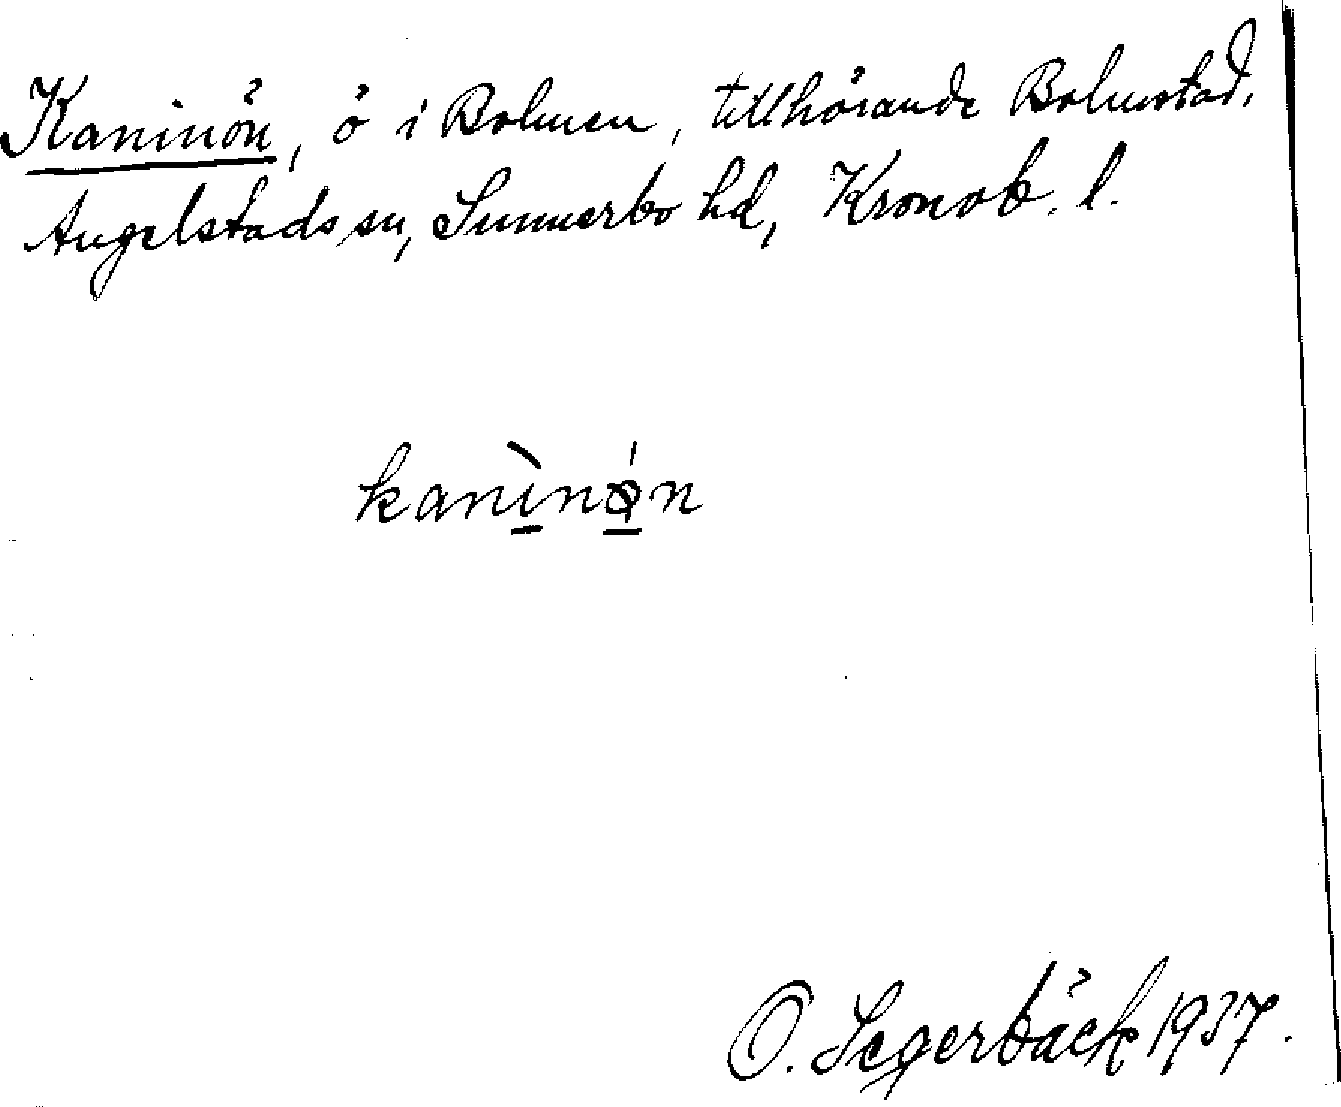 Kaninön, ö i Bolmen, tillhörande Bolmstad,
Angelstads sn, Sunnerbo hd, Kronob. l.
kanìnǿn
O. Segerbäck 1937.